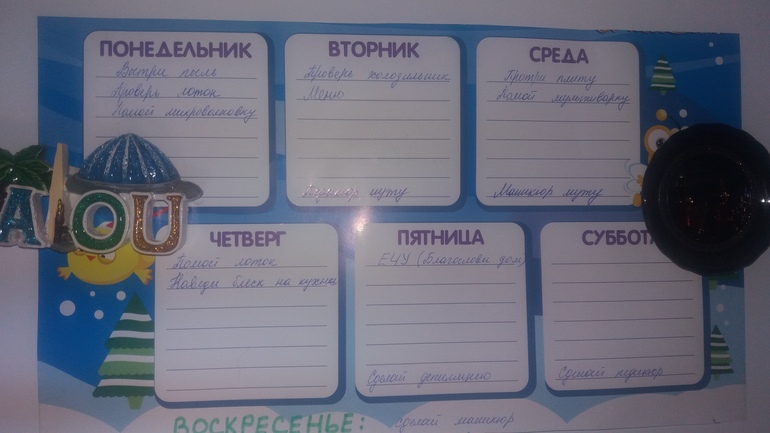 ПОНЕДЕЛЬНИК
Вытри пыль
Проверь лоток
Помой микроволновку
ВТОРНИК
Проверь холодильник
Меню
мужу
СРЕДА
Протри плиту
Помой мультиварку
Маникюр мужу
ЧЕТВЕРГ
Помой лоток
Наведи блеск на кухне
ПЯТНИЦА
ЕЧУ (Благослови дом)
Сделай депиляцию
СУББОТА
Сделай педикюр
ВОСКРЕСЕНЬЕ: сделай маникюр
AlOU